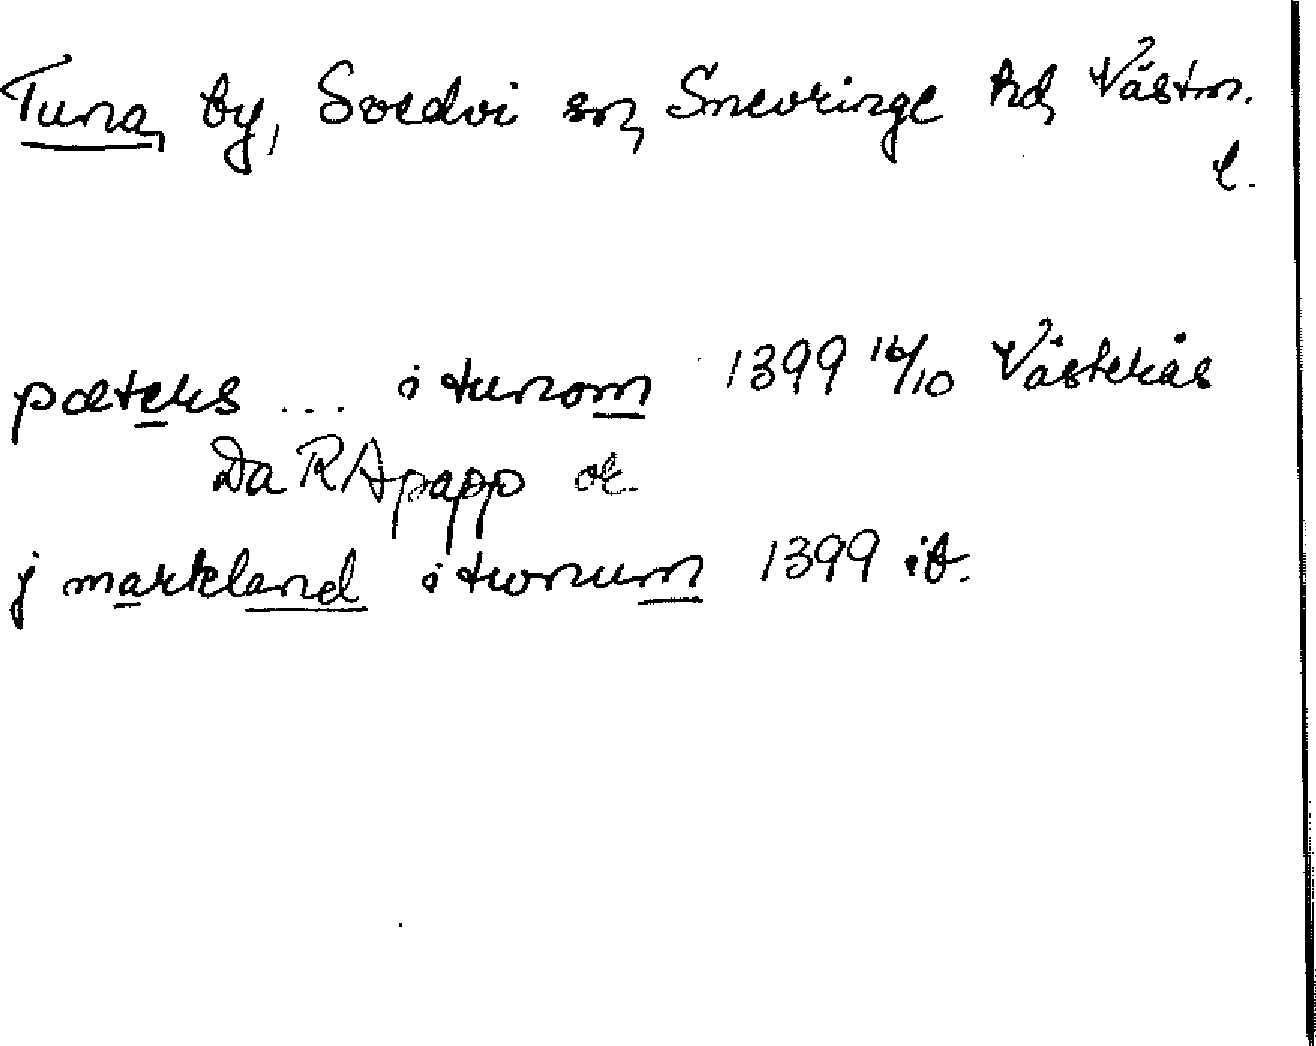 Tuna, by, Svedvi sn, Snevringe hd, Västm.
l.
pæters ... i tunom 1399 16/10 Västerås
Da RApapp or.
j markland i twnum 1399 ib.